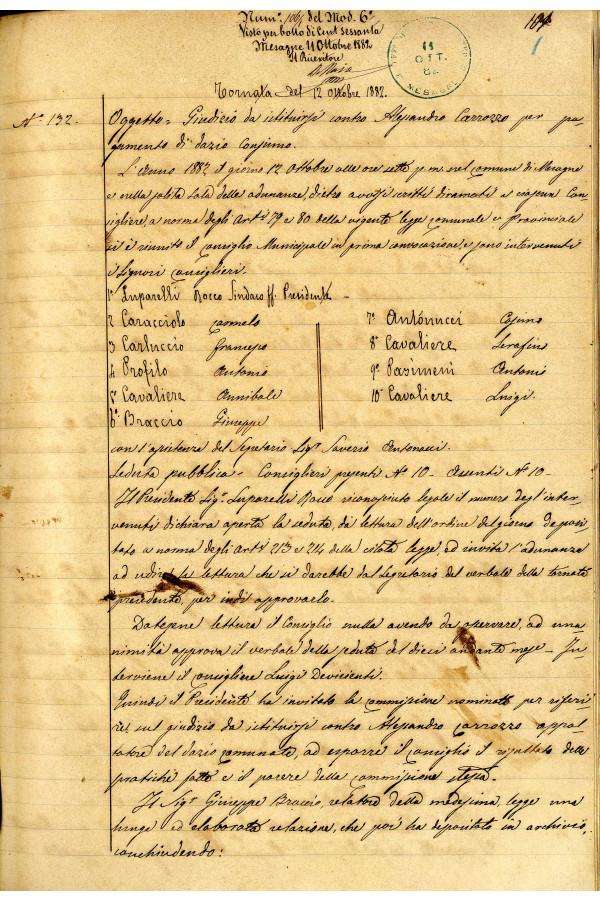 Num. 1061 del Mod. 6°
Visto per bollo di Cent. Sessanta
Mesagne 11 Ottobre 1882
Il Ricevitore
184
1
11
OTT.
82
MESAGNE
Tornata del 12 Ottobre 1882.
N° 132.
Oggetto = Giudizio da istituirsi contro Alessandro Carrozzo per pa=
gamento di dazio consumo.
L'anno 1882 il giorno 12 Ottobre alle ore sette p.m. nel comune di Mesagne
e nella solita sala delle adunanze, dietro avvisi scritti diramati a ciascun Con
sigliere, a norma degli Art.i 79 e 80 della vigente legge comunale e Provinciale
si è riunito il Consiglio Municipale in prima convocazione, e sono intervenuti
i Signori Consiglieri.
1° Luparelli Rocco Sindaco ff. Presidente
2 Caracciolo Carmelo
3 Carluccio Francesco
4 Profilo Antonio
5° Cavaliere Annibale
6° Braccio Giuseppe
7° Antonucci Cosimo
8° Cavaliere Serafino
9° Pasimeni Antonio
10° Cavaliere Luigi.
con l'assistenza del Segretario Sig.r Saverio Antonucci.
Seduta pubblica = Consiglieri presenti N° 10 - Assenti N° 10 -
Il Presidente Sig.r Luparelli Rocco riconosciuto legale il numero degl'inter-
venuti dichiara aperta la seduta, dà lettura dell'ordine del giorno deposi
tato a norma degli Art.i 213 e 214 della citata legge, ed invita l'adunanza
ad udire la lettura che si darebbe dal Segretario del verbale della tornata
precedente, per indi approvarlo.
Datasene lettura il Consiglio nulla avendo da osservare, ad una
nimità approva il verbale della seduta del dieci andante mese - In
terviene il consigliere Luigi Devicienti.
Quindi il Presidente ha invitato la commissione nominata per riferi
re sul giudizio da istituirsi contro Alessandro Carrozzo appal
tatore del dazio comunale, ad esporre il consiglio il risultato delle
pratiche fatte e il parere della commissione stessa.
Il Sig.r Giuseppe Braccio, relatore della medesima, legge una
lunga ed elaborata relazione, che poi ha depositato in archivio,
conchiudendo: